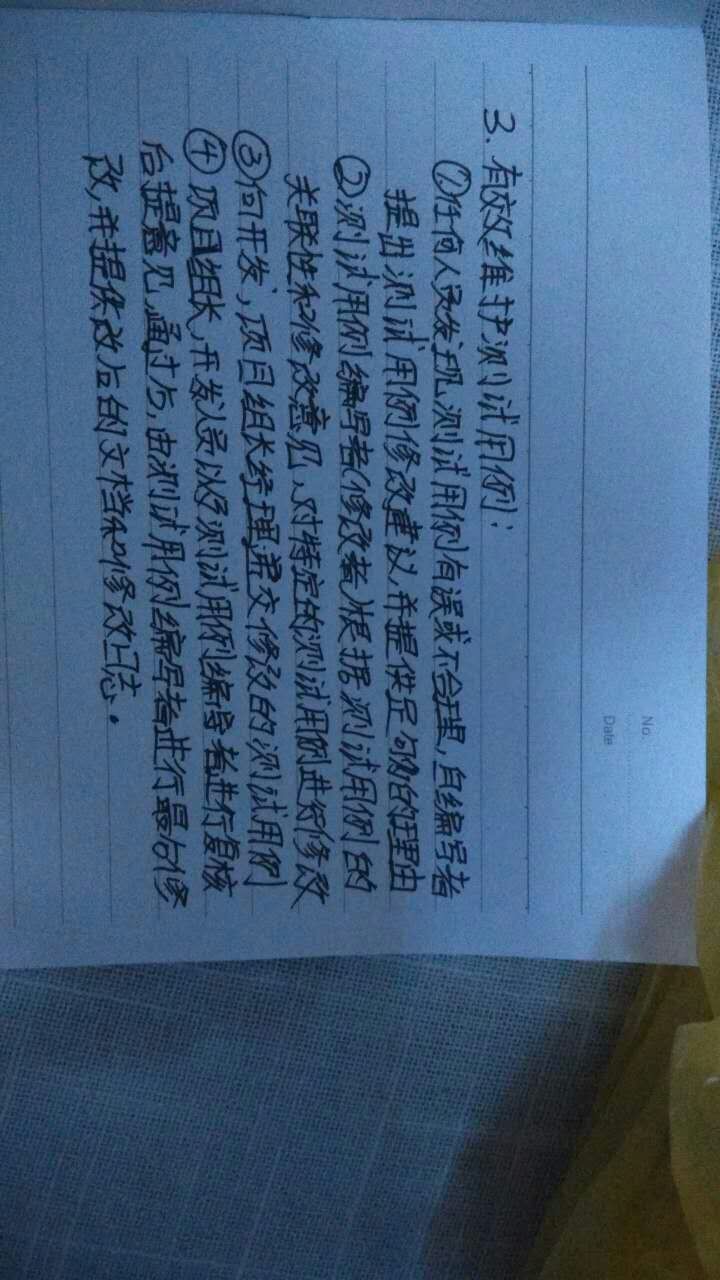 No.
Date
3. 有效维护测试用例:
①任何人员发现测试用例有误或不合理,自编写者
提出测试用例修改建议,并提供足够的理由
②测试用例编写者(修改者)根据测试用例的
关联性和修改意见,对特定的测试用例进行修改
③向开发、项目组长经理递交修改的测试用例
④项目组长,开发人员以及测试用例编写者进行复核
后提意见,通过后,由测试用例编写者进行最后修
改,并提供改后的文档和修改日志。